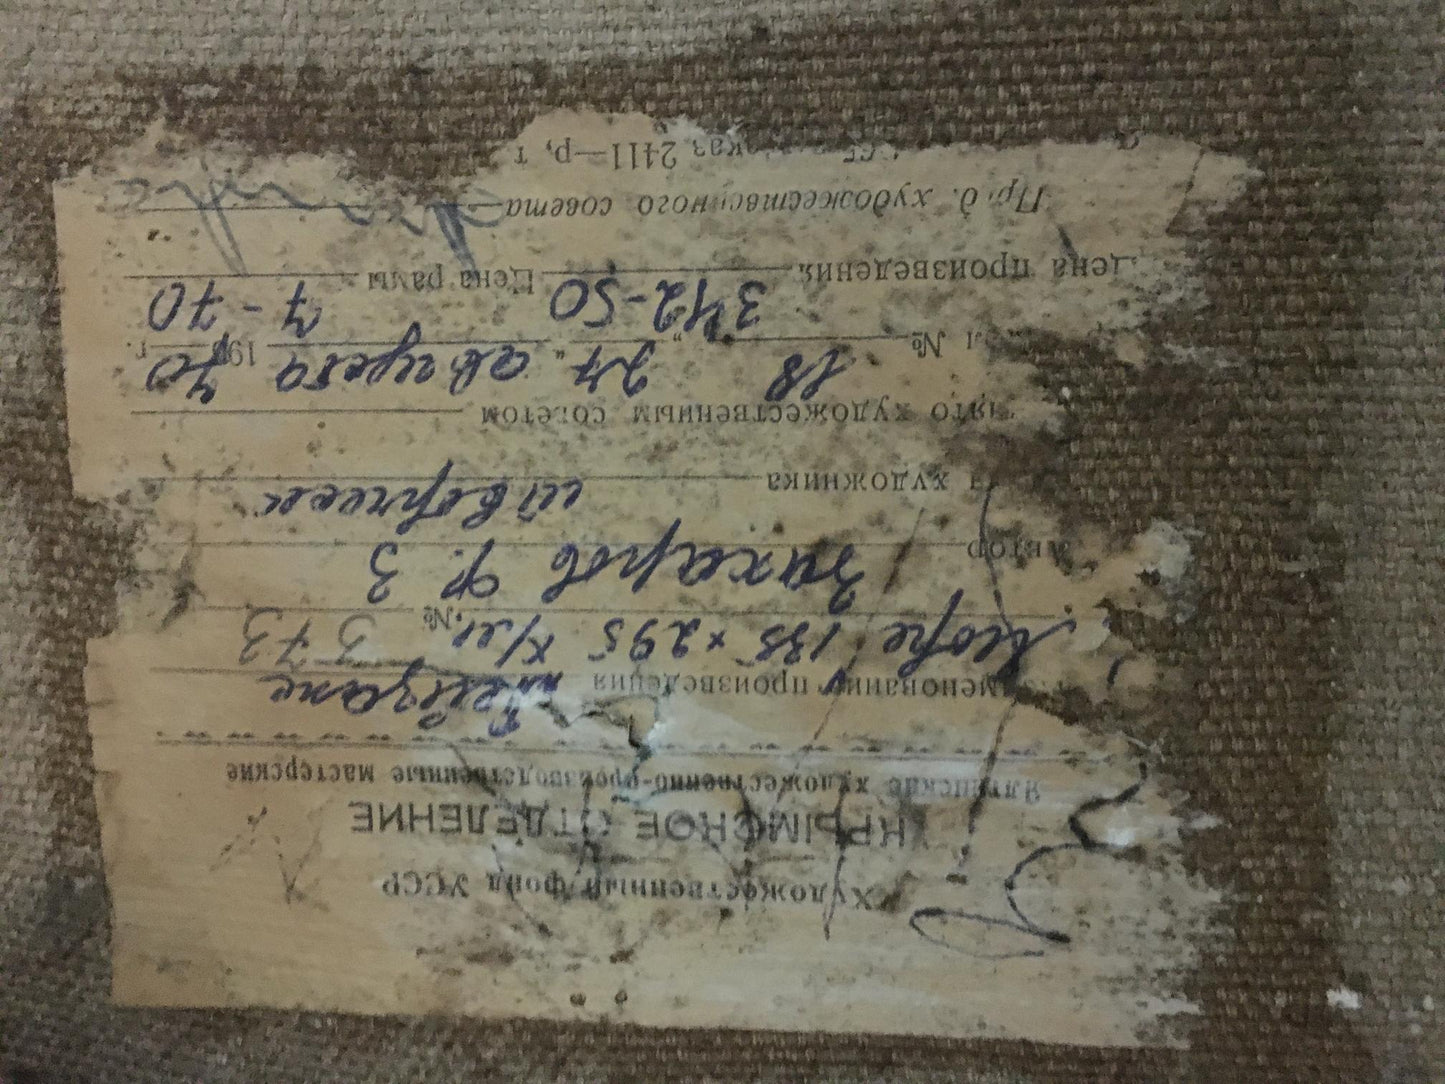 Художественный фонд УССР
КРЫМСКОЕ ОТДЕЛЕНИЕ
Ялтинские художественно-производственные мастерские
менование произведения Пейзаж
Море 135 × 295 х/м № 573
Автор Захаров Ф. З
художника
нято художественным советом
л № 18 „ 27 “ августа 1970 г.
Цена произведения 342-50 Цена рамы 7-70
Пр д. художественного совета
каз 2411—р, т